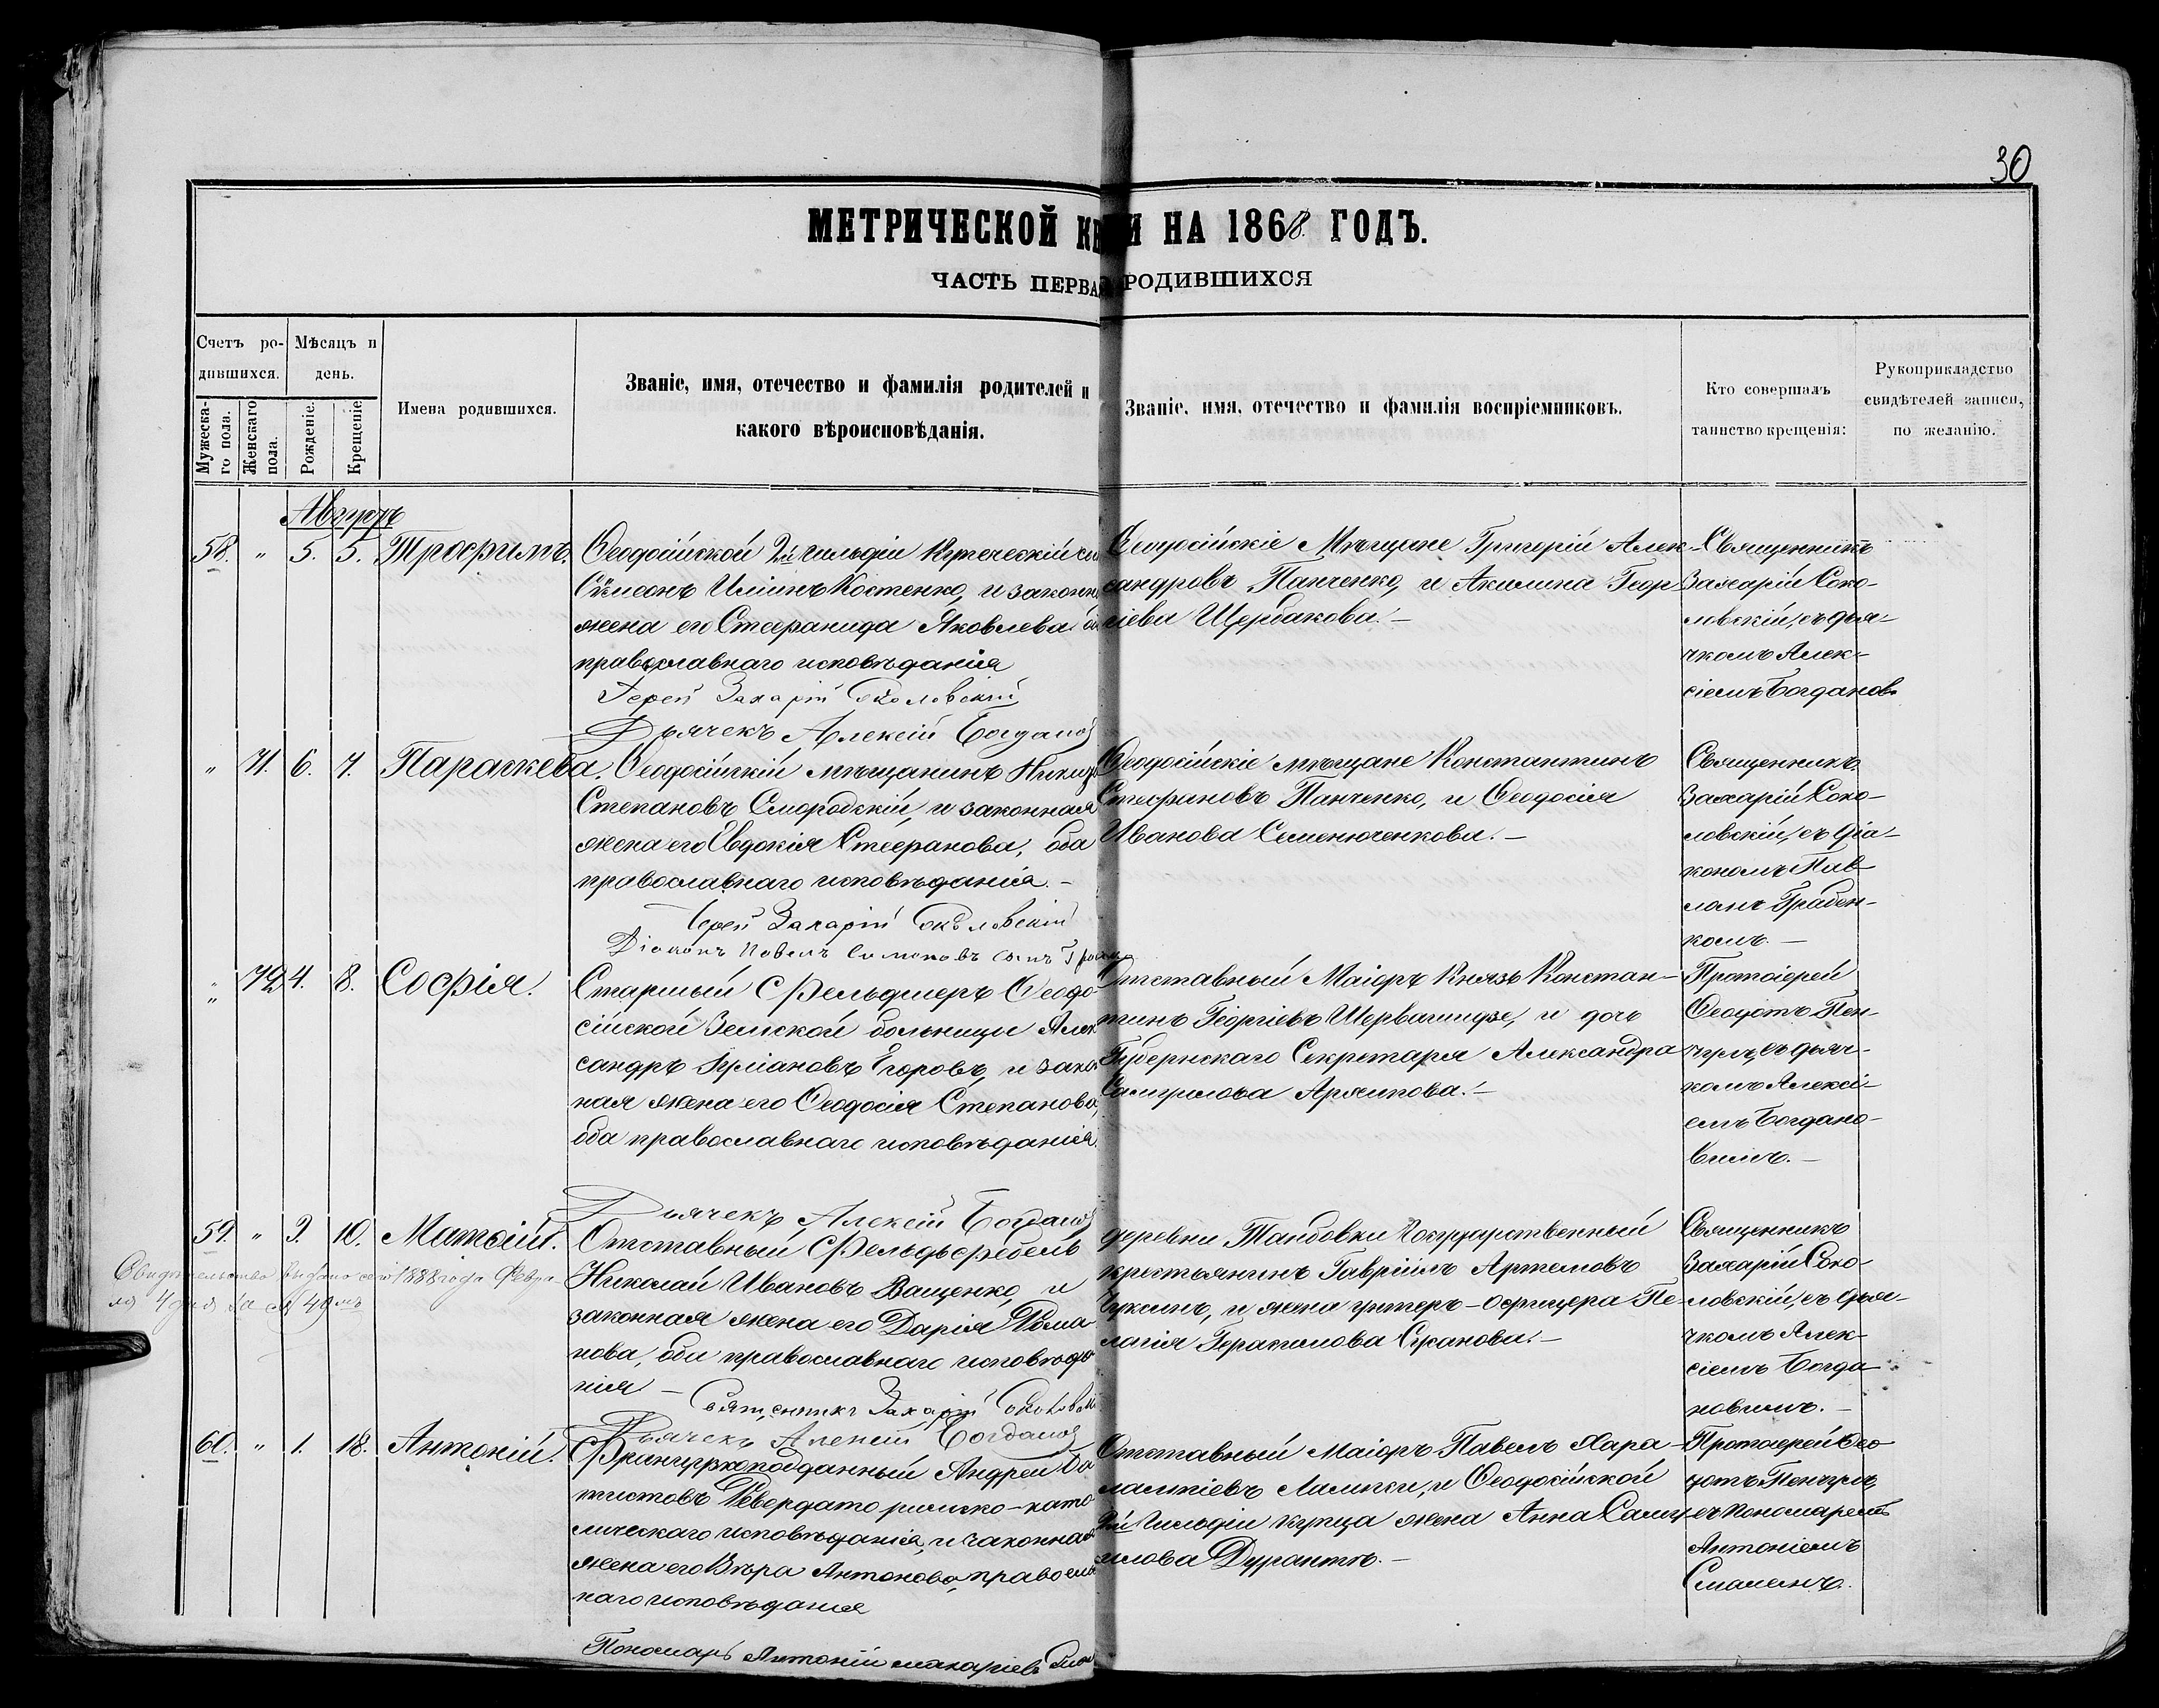 30
МЕТРИЧЕСКОЙ КН И НА 1868. ГОДЪ.
ЧАСТЬ ПЕРВАЯ РОДИВШИХСЯ
Счетъ ро-
дившихся.
Мѣсяцъ и
день.
Мужеска-
го пола.
Женскаго
пола.
Рожденіе.
Крещеніе
Имена родившихся.
Званіе, имя, отечество и фамилія родителей и
какого вѣроисповѣданія.
Званіе, имя, отечество и фамилія воспріемниковъ.
Кто совершалъ
таинство крещенія:
Рукоприкладство
свидѣтелей записи,
по желанію.
Августъ
58. " 5. 5. Трофимъ.
Ѳеодосійской 2й гильдіи Купеческій
Сѷмеонъ Иліинъ Костенко, и законн
жена его Стефанида Яковлева
православнаго исповѣданія
Іерей Захарій Соколовскій
Дьячекъ Алексій Богданов
Ѳеодосійскіе Мѣщане Григорій Алек-
сандровъ Панченко, и Акилина Геор-
гіева Щербакова. –
Священникъ
Захарій Соко-
ловскій, съ дья-
чкомъ Алек-
сіемъ Богданов
" 71. 6. 7. Параскева.
Ѳеодосійскій мѣщанинъ
Степановъ Смородскій, и законная
жена его Евдокія Стефанова, оба
православнаго исповѣданія. –
Іерей Захарій Соколовскій
Діаконъ Павелъ
Ѳеодосійскіе мѣщане Константинъ
Стефановъ Панченко, и Ѳеодосія
Иванова Семенюченкова. –
Священникъ
Захарій Соко-
ловскій, съ діа-
кономъ Пав-
ломъ Грабен-
комъ. –
" 72 4. 8. Софія.
Старшый Фельдшеръ Ѳеодо-
сійской Земской больницы Алек
сандръ Іуліановъ Егоровъ, и закон
ная жена его Ѳеодосія Степанова,
оба православнаго исповѣданія.
Дьячекъ Алексій Богданов
Отставный Маіоръ Князь Констан-
тинъ Геѻргіевъ Шервашидзе, и дочь
Губернскаго Секретаря Александра
Самуилова Аряипова. –
Протоіерей
Ѳеодотъ Пен-
чулъ, съ дьяч-
комъ Алексі-
емъ Богдано-
вымъ. –
59. " 9. 10. Матѳій.
Свидѣтельство выдано сего 1888 года Февра-
ля 4 дня за № 49мъ
Отставный Фельдьфебель
Николай Ивановъ Ващенко, и
законная жена его Дарія Рома
нова, оба православнаго исповѣда
нія. –
Священникъ Захарій Соколовскі
Дьячекъ Алексій Богданов
деревни Тамбовки Государственный
крестьянинъ Гавріилъ Артемовъ
Чуксинъ, и жена унтеръ-офицера Пе-
лагія Герасимова Суханова. –
Священникъ
Захарій Соко-
ловскій, съ дья-
чкомъ Алек-
сіемъ Богда
новымъ. –
60. " 1. 18. Антоній.
Французкоподданный Андрей Ба
тистовъ Ревердато римско-като
лическаго исповѣданія, и законная
жена его Вѣра Антонова, правосла
наго исповѣданія
Пономарь Антоній Макаріевъ
Отставный Маіоръ Павелъ Хара-
лампіевъ Лампси, и Ѳеодосійской
2й Гильдіи купца жена Анна Саму
илова Дуранте. –
Протоіерей Ѳео
дотъ Пенчулъ,
съ Пономаремъ
Антоніемъ